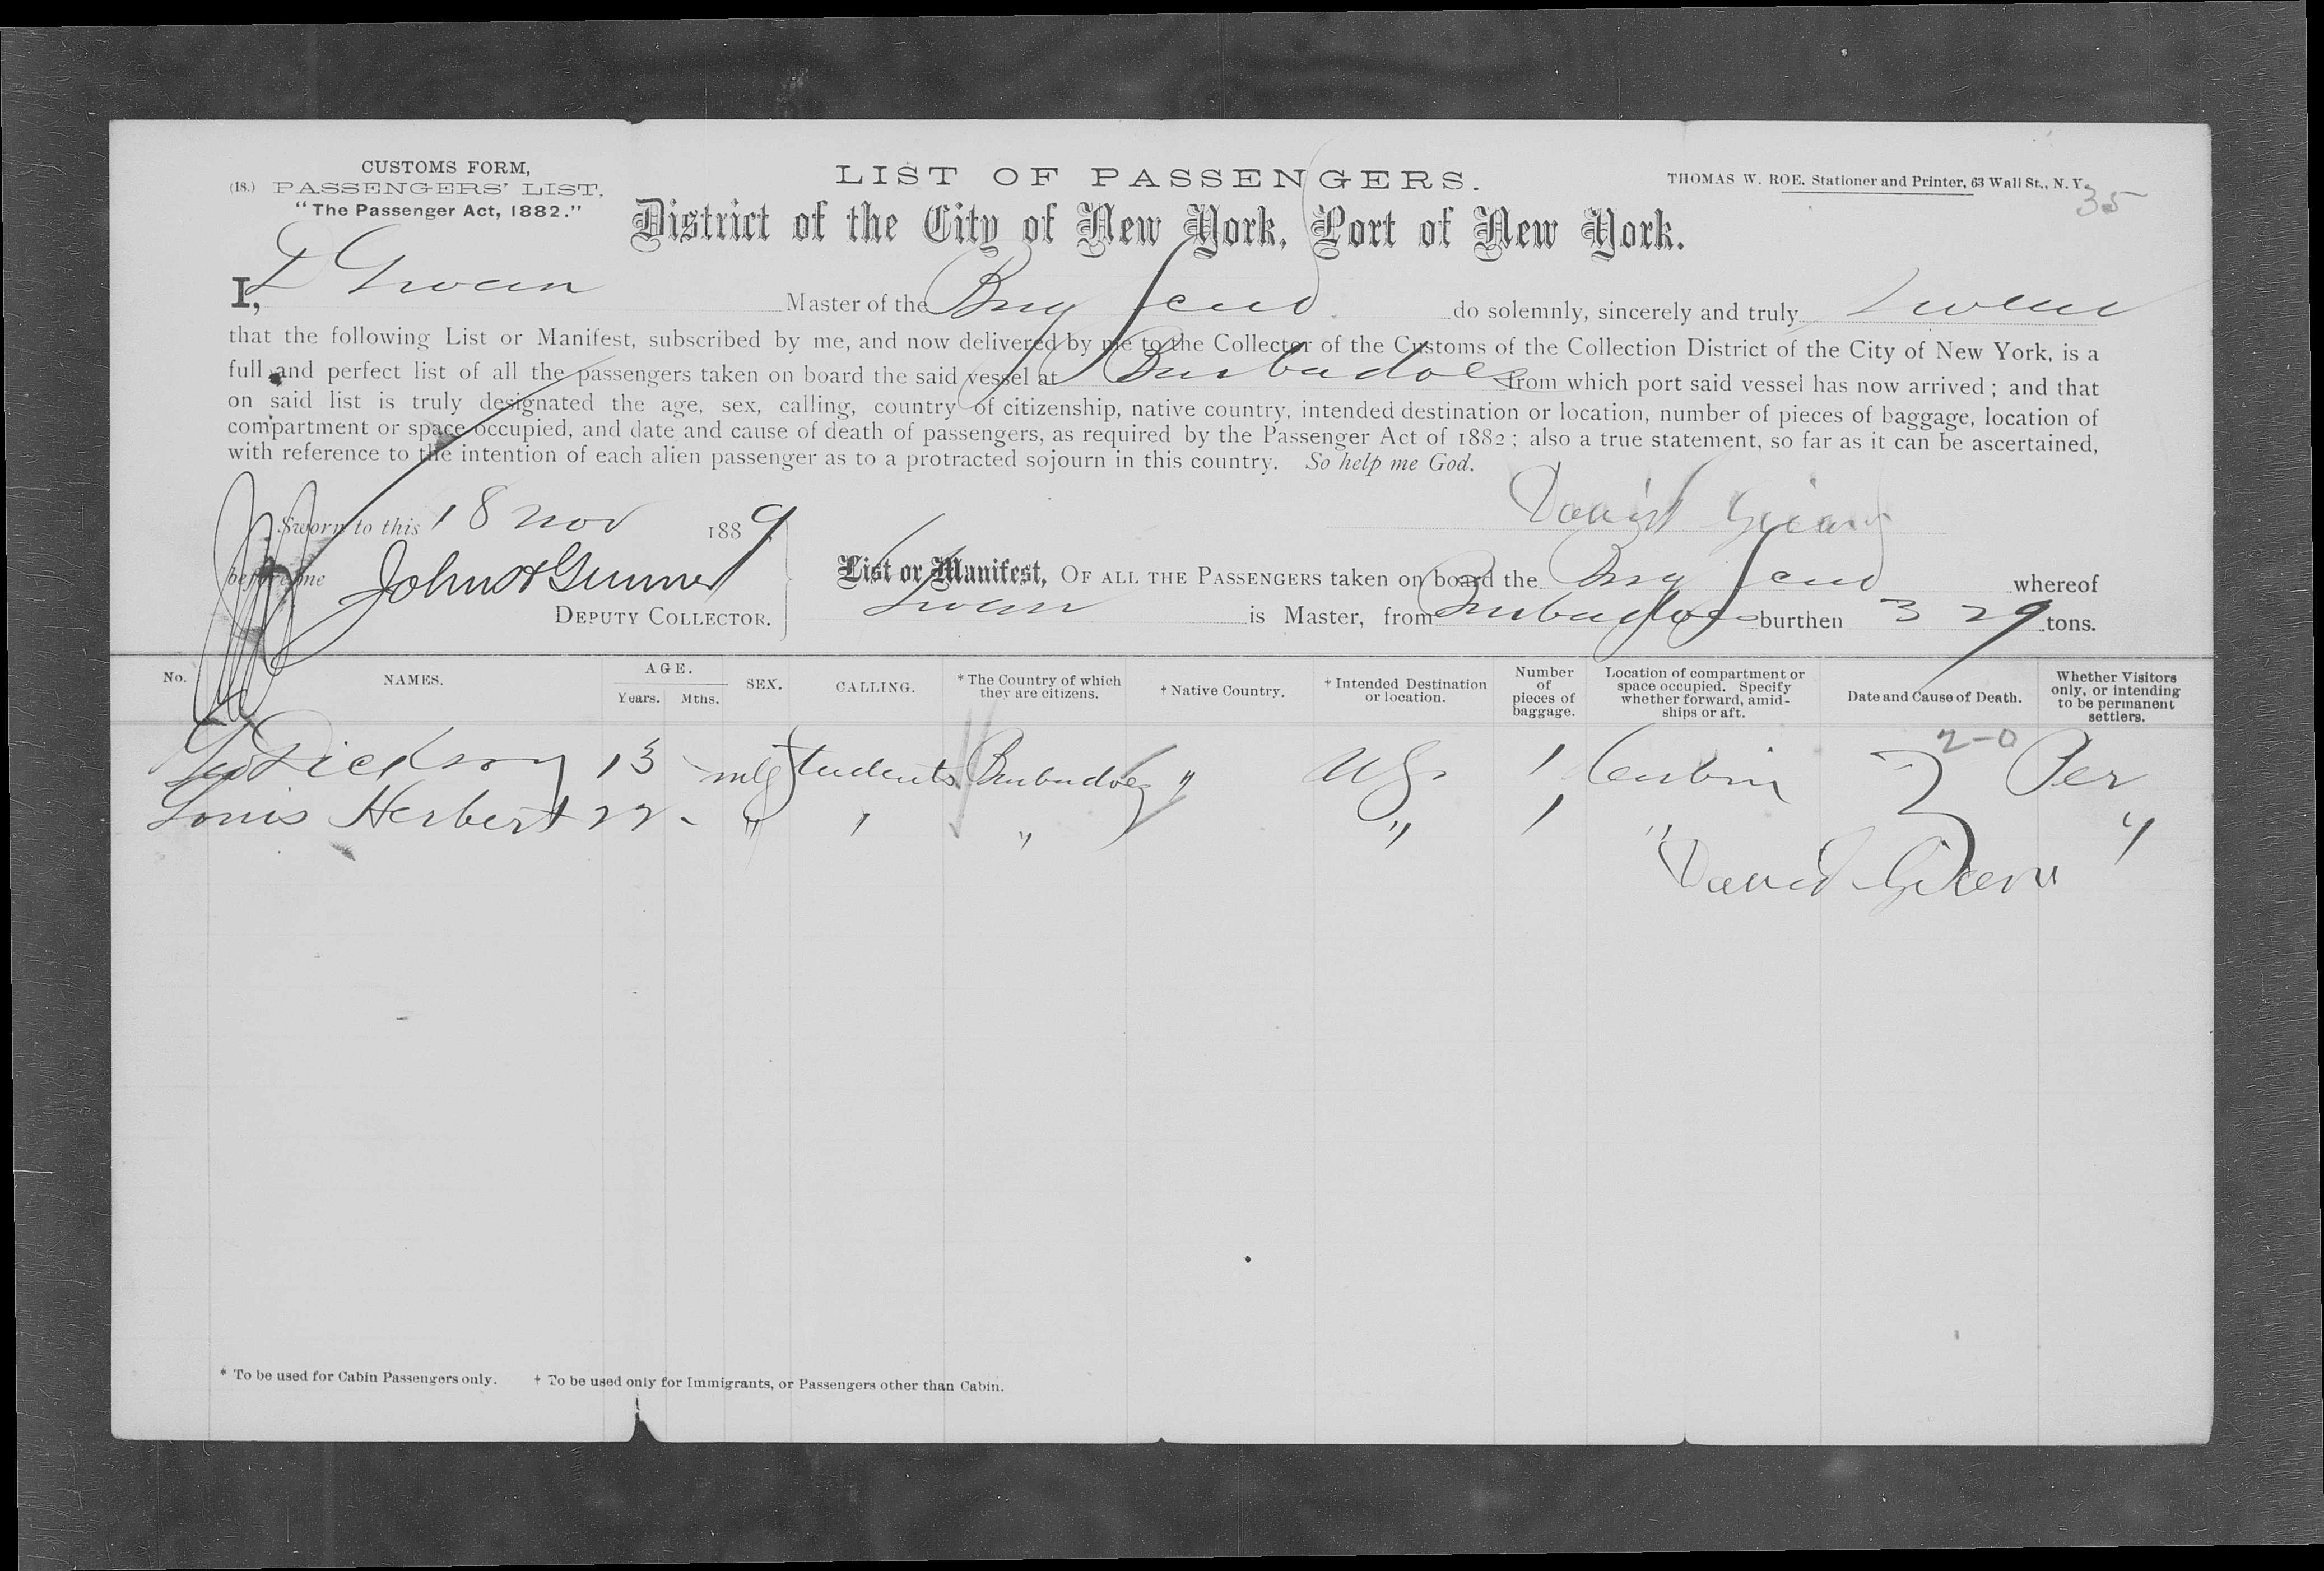 CUSTOMS FORM,
(18.) PASSENGERS' LIST.
"The Passenger Act, 1882."
LIST OF PASSENGERS.
THOMAS W. ROE, Stationer and Printer, 63 Wall St., N. Y.
35
District of the City of New York, Port of New York.
I, D Master of the do solemnly, sincerely and truly swear
that the following List or Manifest, subscribed by me, and now delivered by me to the Collector of the Customs of the Collection District of the City of New York, is a
full and perfect list of all the passengers taken on board the said vessel at Barbadoes from which port said vessel has now arrived; and that
on said list is truly designated the age, sex, calling, country of citizenship, native country, intended destination or location, number of pieces of baggage, location of
compartment or space occupied, and date and cause of death of passengers, as required by the Passenger Act of 1882; also a true statement, so far as it can be ascertained,
with reference to the intention of each alien passenger as to a protracted sojourn in this country. So help me God.
David
Sworn to this 18 Nov 1889
before me John
DEPUTY COLLECTOR.
List or Manifest, OF ALL THE PASSENGERS taken on board the whereof
is Master, from Barbadoes burthen 329 tons.
No. NAMES. AGE. Years. Mths. SEX. CALLING. * The Country of which they are citizens. † Native Country. † Intended Destination or location. Number of pieces of baggage. Location of compartment or space occupied. Specify whether forward, amidships or aft. Date and Cause of Death. Whether Visitors only, or intending to be permanent settlers.
2-0
Geo Dickson 13 - Students Barbadoes " US 1 Cabin Per
Louis Herbert 22 - " " " " 1 " "
David
* To be used for Cabin Passengers only. † To be used only for Immigrants, or Passengers other than Cabin.